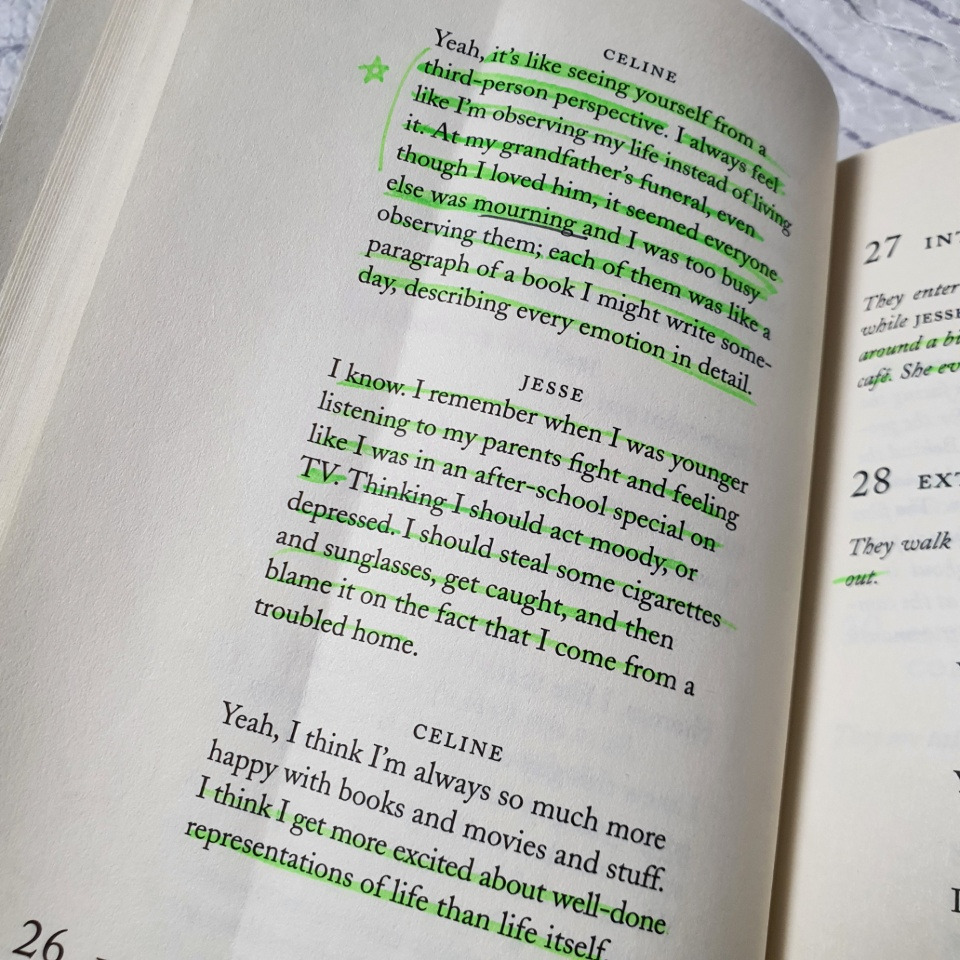 CELINE
Yeah, it's like seeing yourself from a
third-person perspective. I always feel
like I'm observing my life instead of living
it. At my grandfather's funeral, even
though I loved him, it seemed everyone
else was mourning and I was too busy
observing them; each of them was like a
paragraph of a book I might write some-
day, describing every emotion in detail.
JESSE
I know. I remember when I was younger
listening to my parents fight and feeling
like I was in an after-school special on
TV. Thinking I should act moody, or
depressed. I should steal some cigarettes
and sunglasses, get caught, and then
blame it on the fact that I come from a
troubled home.
CELINE
Yeah, I think I'm always so much more
happy with books and movies and stuff.
I think I get more excited about well-done
representations of life than life itself.
26
27 INT
They enter
while JESSE
around a bi
café. She ev
28 EXT
They walk
out.